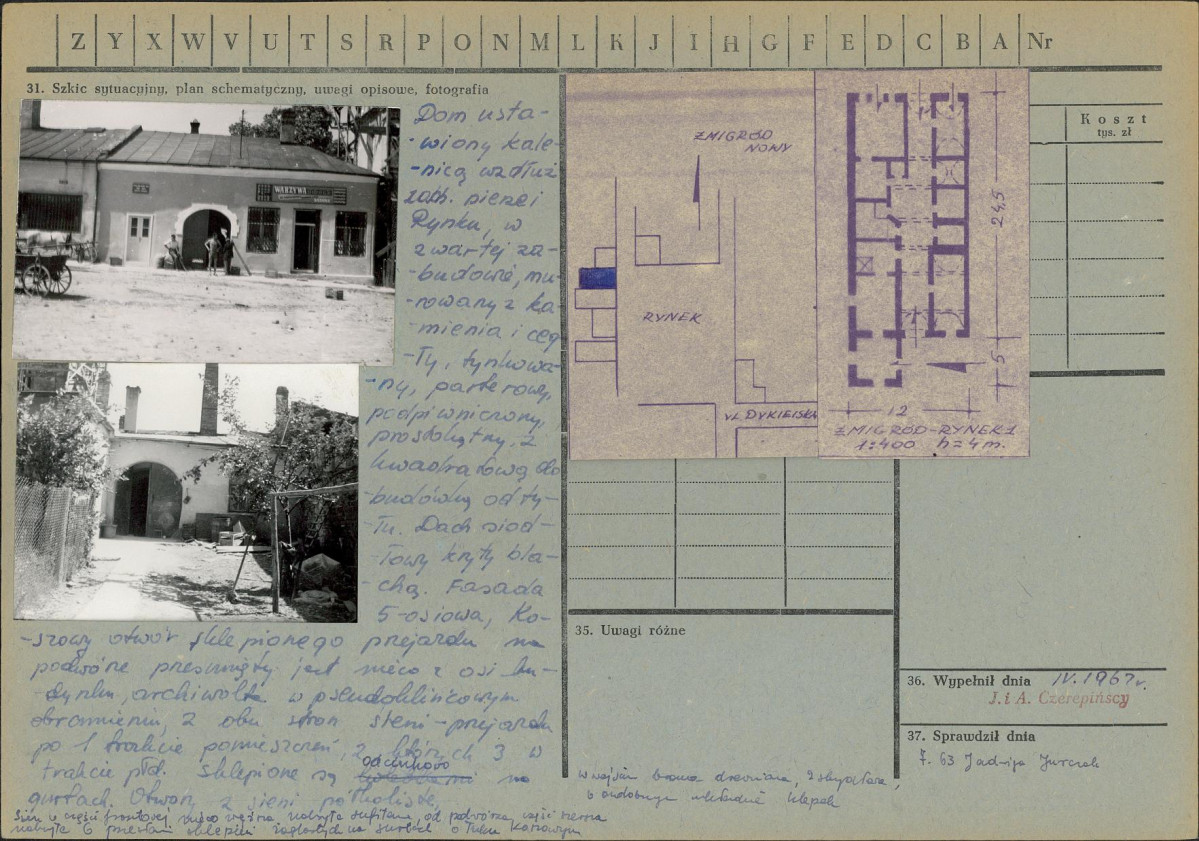 Z Y X W V U T S R P O N M L K J I H G F E D C B A Nr
31. Szkic sytuacyjny, plan schematyczny, uwagi opisowe, fotografia
WARZYWA
Dom usta-
-wiony kale-
-nicą wzdłuż
zach. pierzei
Rynku, w
zwartej za-
-budowie, mu-
-rowany z ka-
-mienia i ceg-
-ły, tynkowa-
-ny, parterowy,
podpiwniczony,
prostokątny, z
kwadratową do
budówką od ty-
-łu. Dach siod-
-łowy kryty bla-
-chą. Fasada
5-osiowa, ko-
-szowy otwór sklepionego przejazdu na
podwórze przesunięty jest nieco z osi bu-
-dynku, archiwolta w pseudoklińcowym
obramieniu, z obu stron sieni-przejazdu
po 1 trakcie pomieszczeń, z których 3 w
trakcie płd. sklepione są odcinkowo na
gurtach. Otwory z sieni półkoliste,
sień w części frontowej nieco węższa, nakryta sufitem, od podwórza część szersza
nakryta 6 przęsłami sklepień żaglastych na gurtach o łuku koszowym
ŻMIGRÓD
NOWY
RYNEK
UL. DYKIELSKA
24,5
5
12
ŻMIGRÓD-RYNEK 1
1:400 h=4m.
Koszt
tys. zł
35. Uwagi różne
w wejściu brama drewniana, 2 skrzydłowa,
o ozdobnym układzie klepek
36. Wypełnił dnia IV. 1967 r.
J. i A. Czerepińscy
37. Sprawdził dnia
7. 63 Jadwiga Jurczak